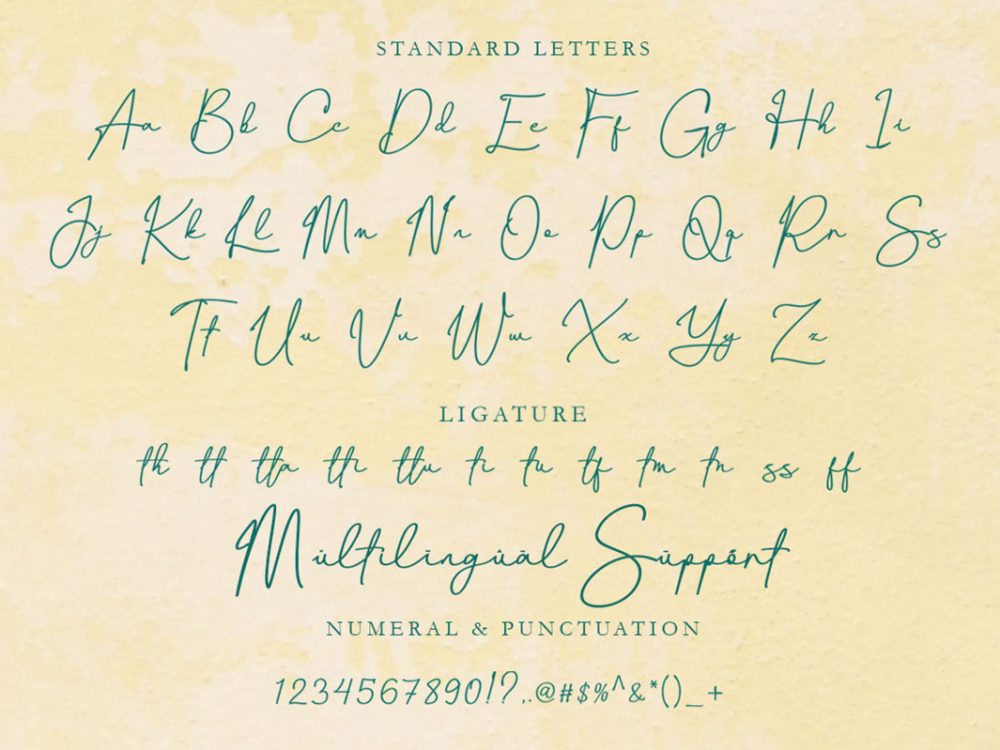 STANDARD LETTERS
Aa Bb Cc Dd Ee Ff Gg Hh Ii
Jj Kk Ll Mm Nn Oo Pp Qq Rr Ss
Tt Uu Vv Ww Xx Yy Zz
LIGATURE
th tt tta tti ttu ti tu tf tm tn ss ff
Mùltilīngùäl Sùppórt
NUMERAL & PUNCTUATION
1234567890!?,.@#$%^&*()_+